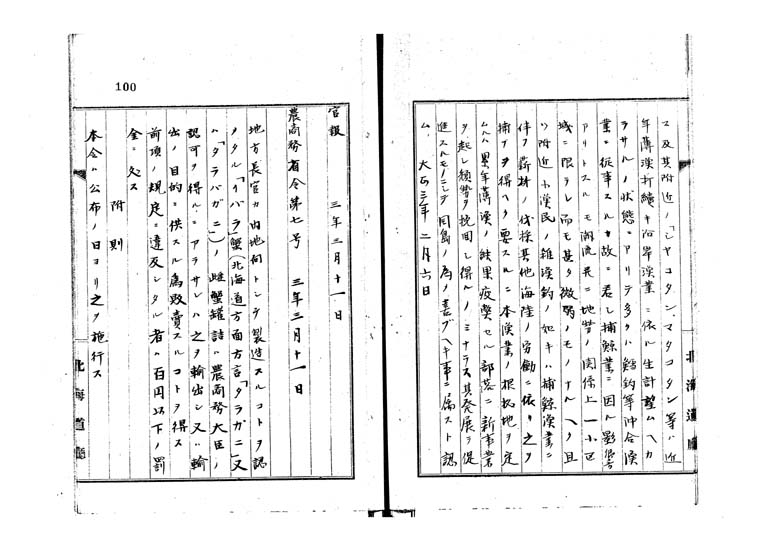 マ及其附近ノ「シヤコタン、マタコタン等ハ近
年薄漁打續キ沿岸漁業ニ依ル生計望ムヘカ
ラサルノ状態ニアリテ多クハ鱈釣等沖合漁
業ニ従事スルカ故ニ若シ捕鯨業ニ因ル影響
アリトスルモ潮流其ニ地勢ノ関係上一小区
域ニ限ラレ而モ甚タ微弱ノモノナルヘク且
ツ附近小漁民ノ雑漁釣ノ如キハ捕鯨漁業ニ
伴フ薪材ノ伐採其他海陸ノ労働ニ依リ之ヲ
補フヲ得ヘク要スルニ本漁業ノ根拠地ヲ定
ムルハ累年薄漁ノ結果疲弊セル部落ニ新事業
ヲ起シ頽勢ヲ挽回シ得ルノミナラス其発展ヲ促
進スルモノニシテ同島ノ為メ喜ブヘキ事ニ属スト認
ム、大正三年二月六日
北海道廳
100
官報 三年三月十一日
農商務省令第七号 三年三月十一日
地方長官カ内地向トシテ製造スルコトヲ認
メタル「イバラ」蟹(北海道方面方言「タラガニ」又
ハ「タラバガニ」)ノ雌蟹罐詰ハ農商務大臣ノ
認可ヲ得ルニアラサレハ之ヲ輸出シ又ハ輸
出ノ目的ニ供スル為販賣スルコトヲ得ス
前項ノ規定ニ違反シタル者ハ百円以下ノ罰
金ニ処ス
附則
本令ハ公布ノ日ヨリ之ヲ施行ス
北海道廳